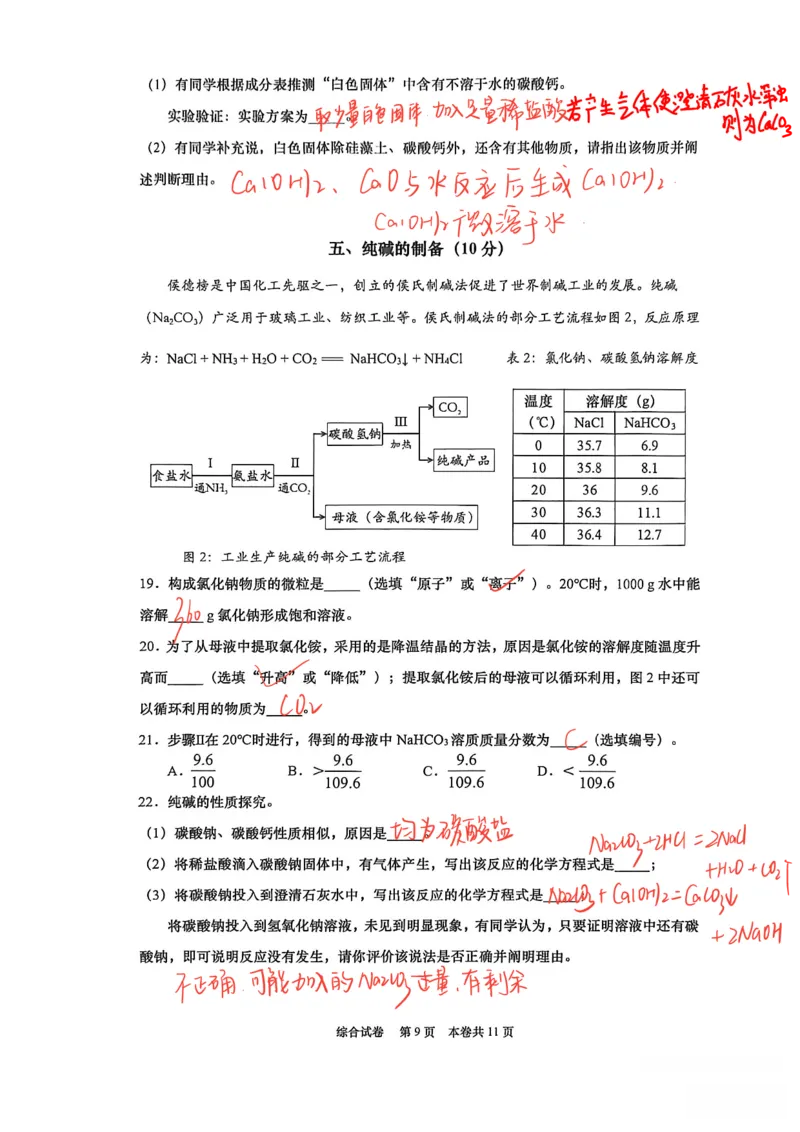 (1) 有同学根据成分表推测“白色固体”中含有不溶于水的碳酸钙。
实验验证：实验方案为取少量白色固体 加入足量稀盐酸若产生气体使澄清石灰水浑浊
则为CaCO3
(2) 有同学补充说，白色固体除硅藻土、碳酸钙外，还含有其他物质，请指出该物质并阐
述判断理由。Ca(OH)2、CaO与水反应后生成Ca(OH)2.
Ca(OH)2微溶于水.
五、纯碱的制备（10 分）
侯德榜是中国化工先驱之一，创立的侯氏制碱法促进了世界制碱工业的发展。纯碱
（Na₂CO₃）广泛用于玻璃工业、纺织工业等。侯氏制碱法的部分工艺流程如图 2，反应原理
为：NaCl + NH₃ + H₂O + CO₂ == NaHCO₃↓ + NH₄Cl 表 2：氯化钠、碳酸氢钠溶解度
食盐水 Ⅰ 通NH₃ 氨盐水 Ⅱ 通CO₂ 碳酸氢钠 Ⅲ 加热 CO₂
纯碱产品
母液（含氯化铵等物质）
温度（℃） 溶解度（g）
NaCl NaHCO₃
0 35.7 6.9
10 35.8 8.1
20 36 9.6
30 36.3 11.1
40 36.4 12.7
图 2：工业生产纯碱的部分工艺流程
19．构成氯化钠物质的微粒是_____（选填“原子”或“离子”）。20℃时，1000 g 水中能
溶解 360 g 氯化钠形成饱和溶液。
20．为了从母液中提取氯化铵，采用的是降温结晶的方法，原因是氯化铵的溶解度随温度升
高而_____（选填“升高”或“降低”）；提取氯化铵后的母液可以循环利用，图 2 中还可
以循环利用的物质为 CO2 。
21．步骤Ⅱ在 20℃时进行，得到的母液中 NaHCO₃ 溶质质量分数为 C （选填编号）。
A．9.6/100 B．>9.6/109.6 C．9.6/109.6 D．<9.6/109.6
22．纯碱的性质探究。
(1) 碳酸钠、碳酸钙性质相似，原因是均为碳酸盐
(2) 将稀盐酸滴入碳酸钠固体中，有气体产生，写出该反应的化学方程式是_____；
Na2CO3+2HCl=2NaCl
+H2O+CO2↑
(3) 将碳酸钠投入到澄清石灰水中，写出该反应的化学方程式是 Na2CO3+Ca(OH)2=CaCO3↓
+2NaOH
将碳酸钠投入到氢氧化钠溶液，未见到明显现象，有同学认为，只要证明溶液中还有碳
酸钠，即可说明反应没有发生，请你评价该说法是否正确并阐明理由。
不正确.可能加入的Na2CO3过量、有剩余
综合试卷 第 9 页 本卷共 11 页